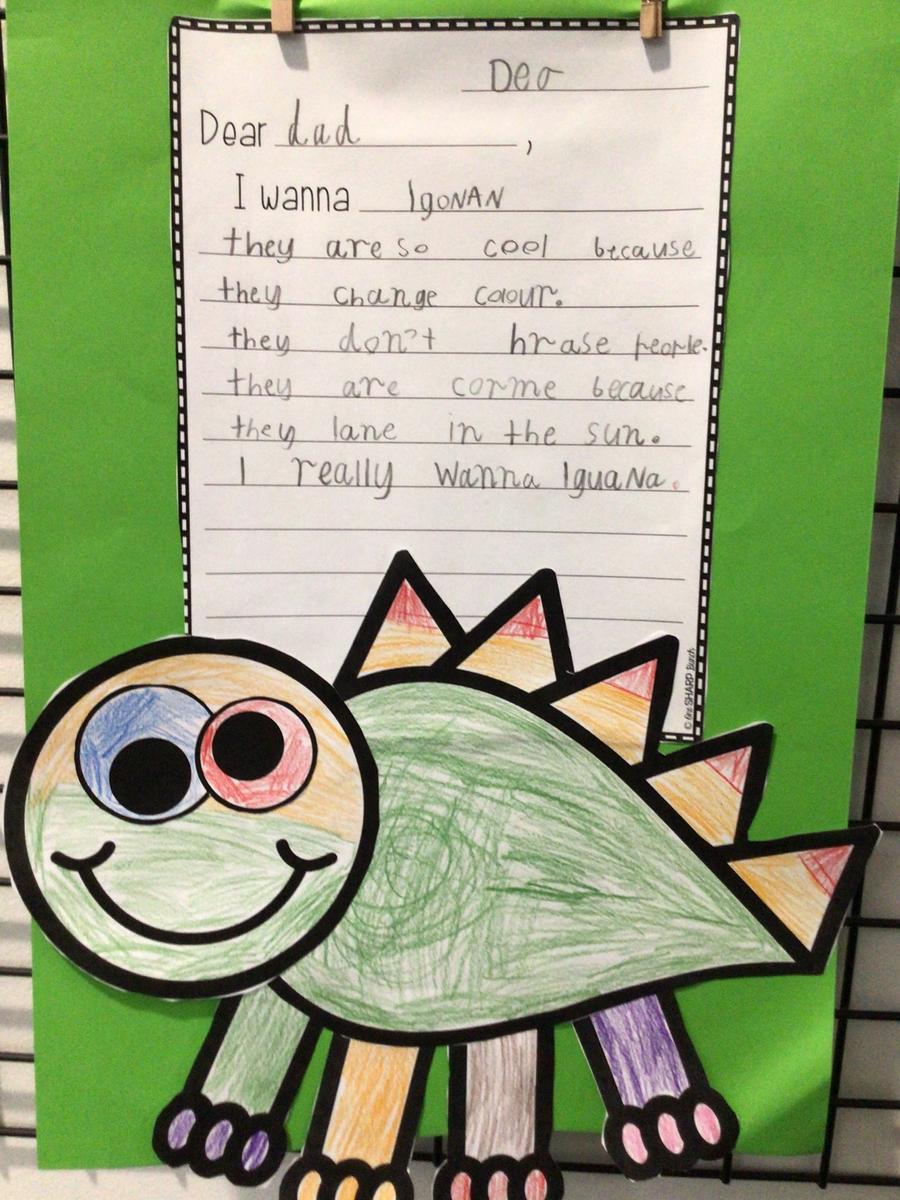 Deo
Dear dad,
I wanna IgoNAN
they are so cool because
they change colour.
they don't hrase people.
they are corme because
they lane in the sun.
I really wanna IguaNa.